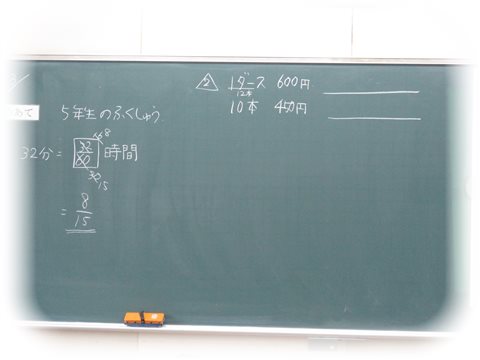 めあて
5年生のふくしゅう
32分=32/60時間
16 8
30 15
=8/15
△2 1ダース 600円
12本
10本 450円